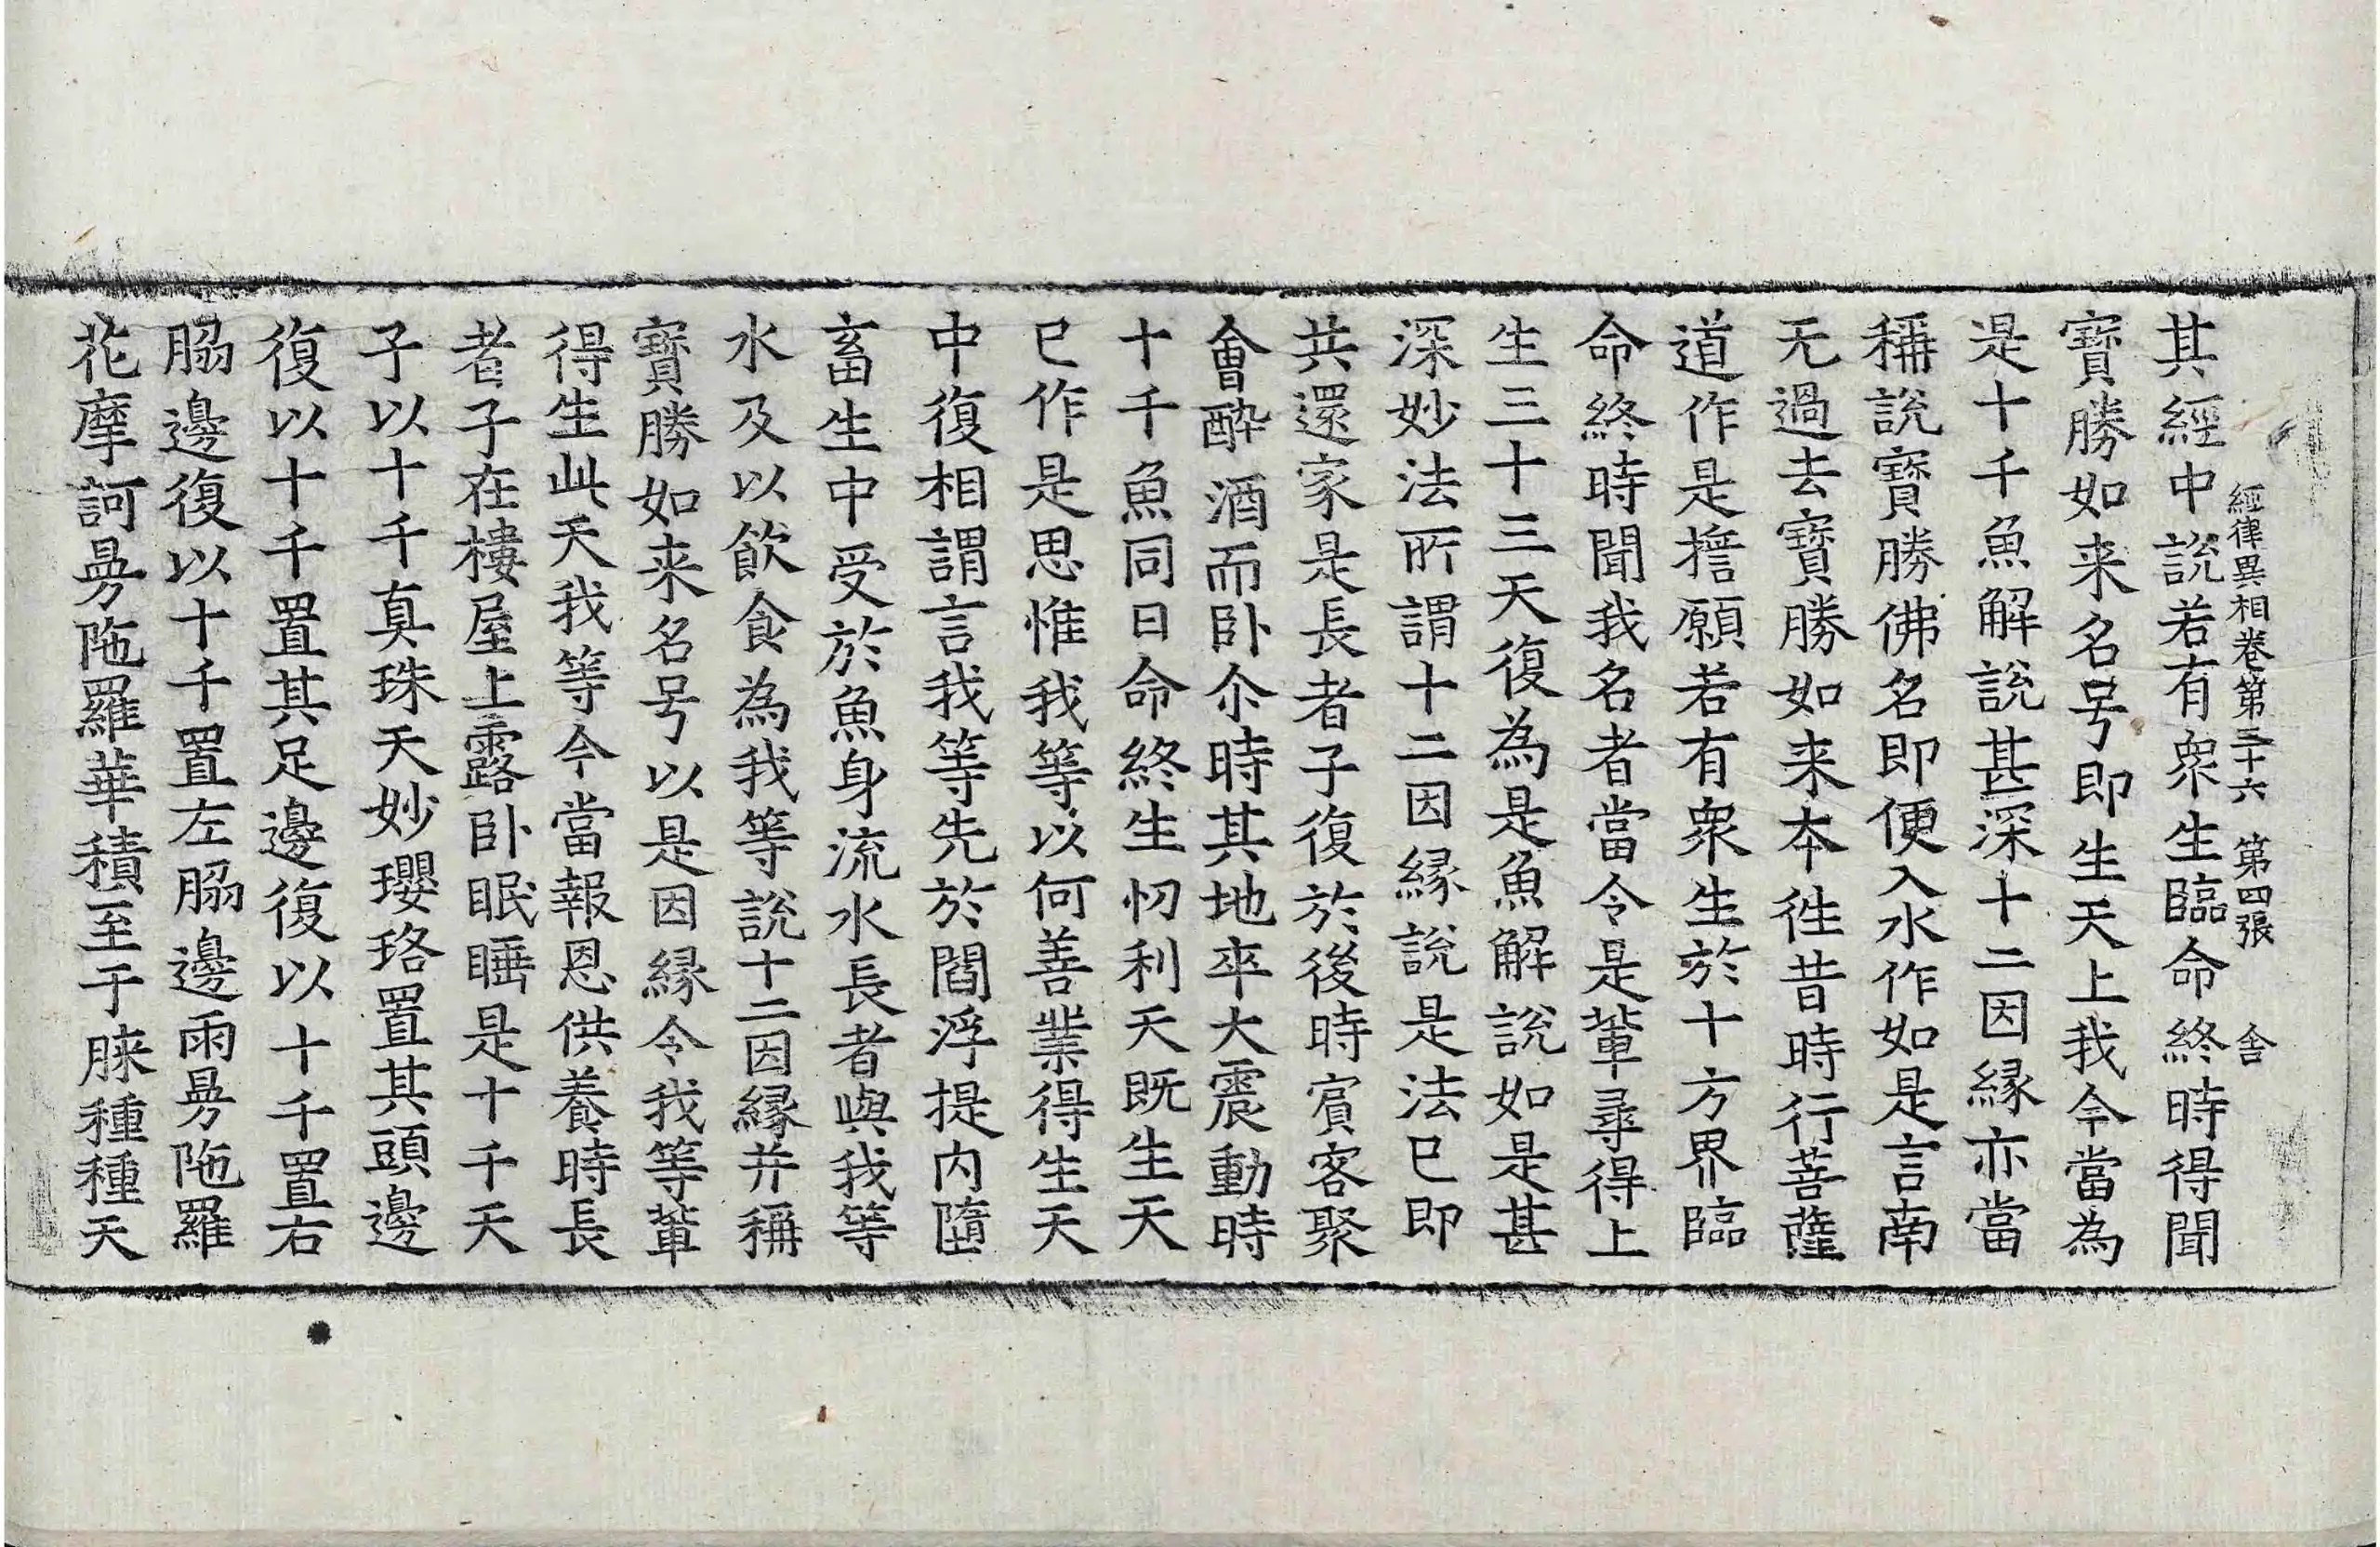 經律異相卷第三十六 第四張 舍
其經中說若有衆生臨命終時得聞
寶勝如来名号即生天上我今當為
是十千魚解說甚深十二因緣亦當
稱說寶勝佛名即便入水作如是言南
无過去寶勝如来本徃昔時行菩薩
道作是擔願若有衆生於十方界臨
命終時聞我名者當令是輩尋得上
生三十三天復為是魚解說如是甚
深妙法所謂十二因緣說是法已即
共還家是長者子復於後時賔客聚
會醉酒而卧尒時其地卒大震動時
十千魚同日命終生忉利天既生天
已作是思惟我等以何善業得生天
中復相謂言我等先於閻浮提内墮
畜生中受於魚身流水長者與我等
水及以飲食為我等說十二因緣并稱
寶勝如来名号以是因緣令我等輩
得生此天我等今當報恩供養時長
者子在樓屋上露卧眠睡是十千天
子以十千真珠天妙瓔珞置其頭邊
復以十千置其足邊復以十千置右
脇邊復以十千置左脇邊雨曼陁羅
花摩訶曼陁羅華積至于膝種種天